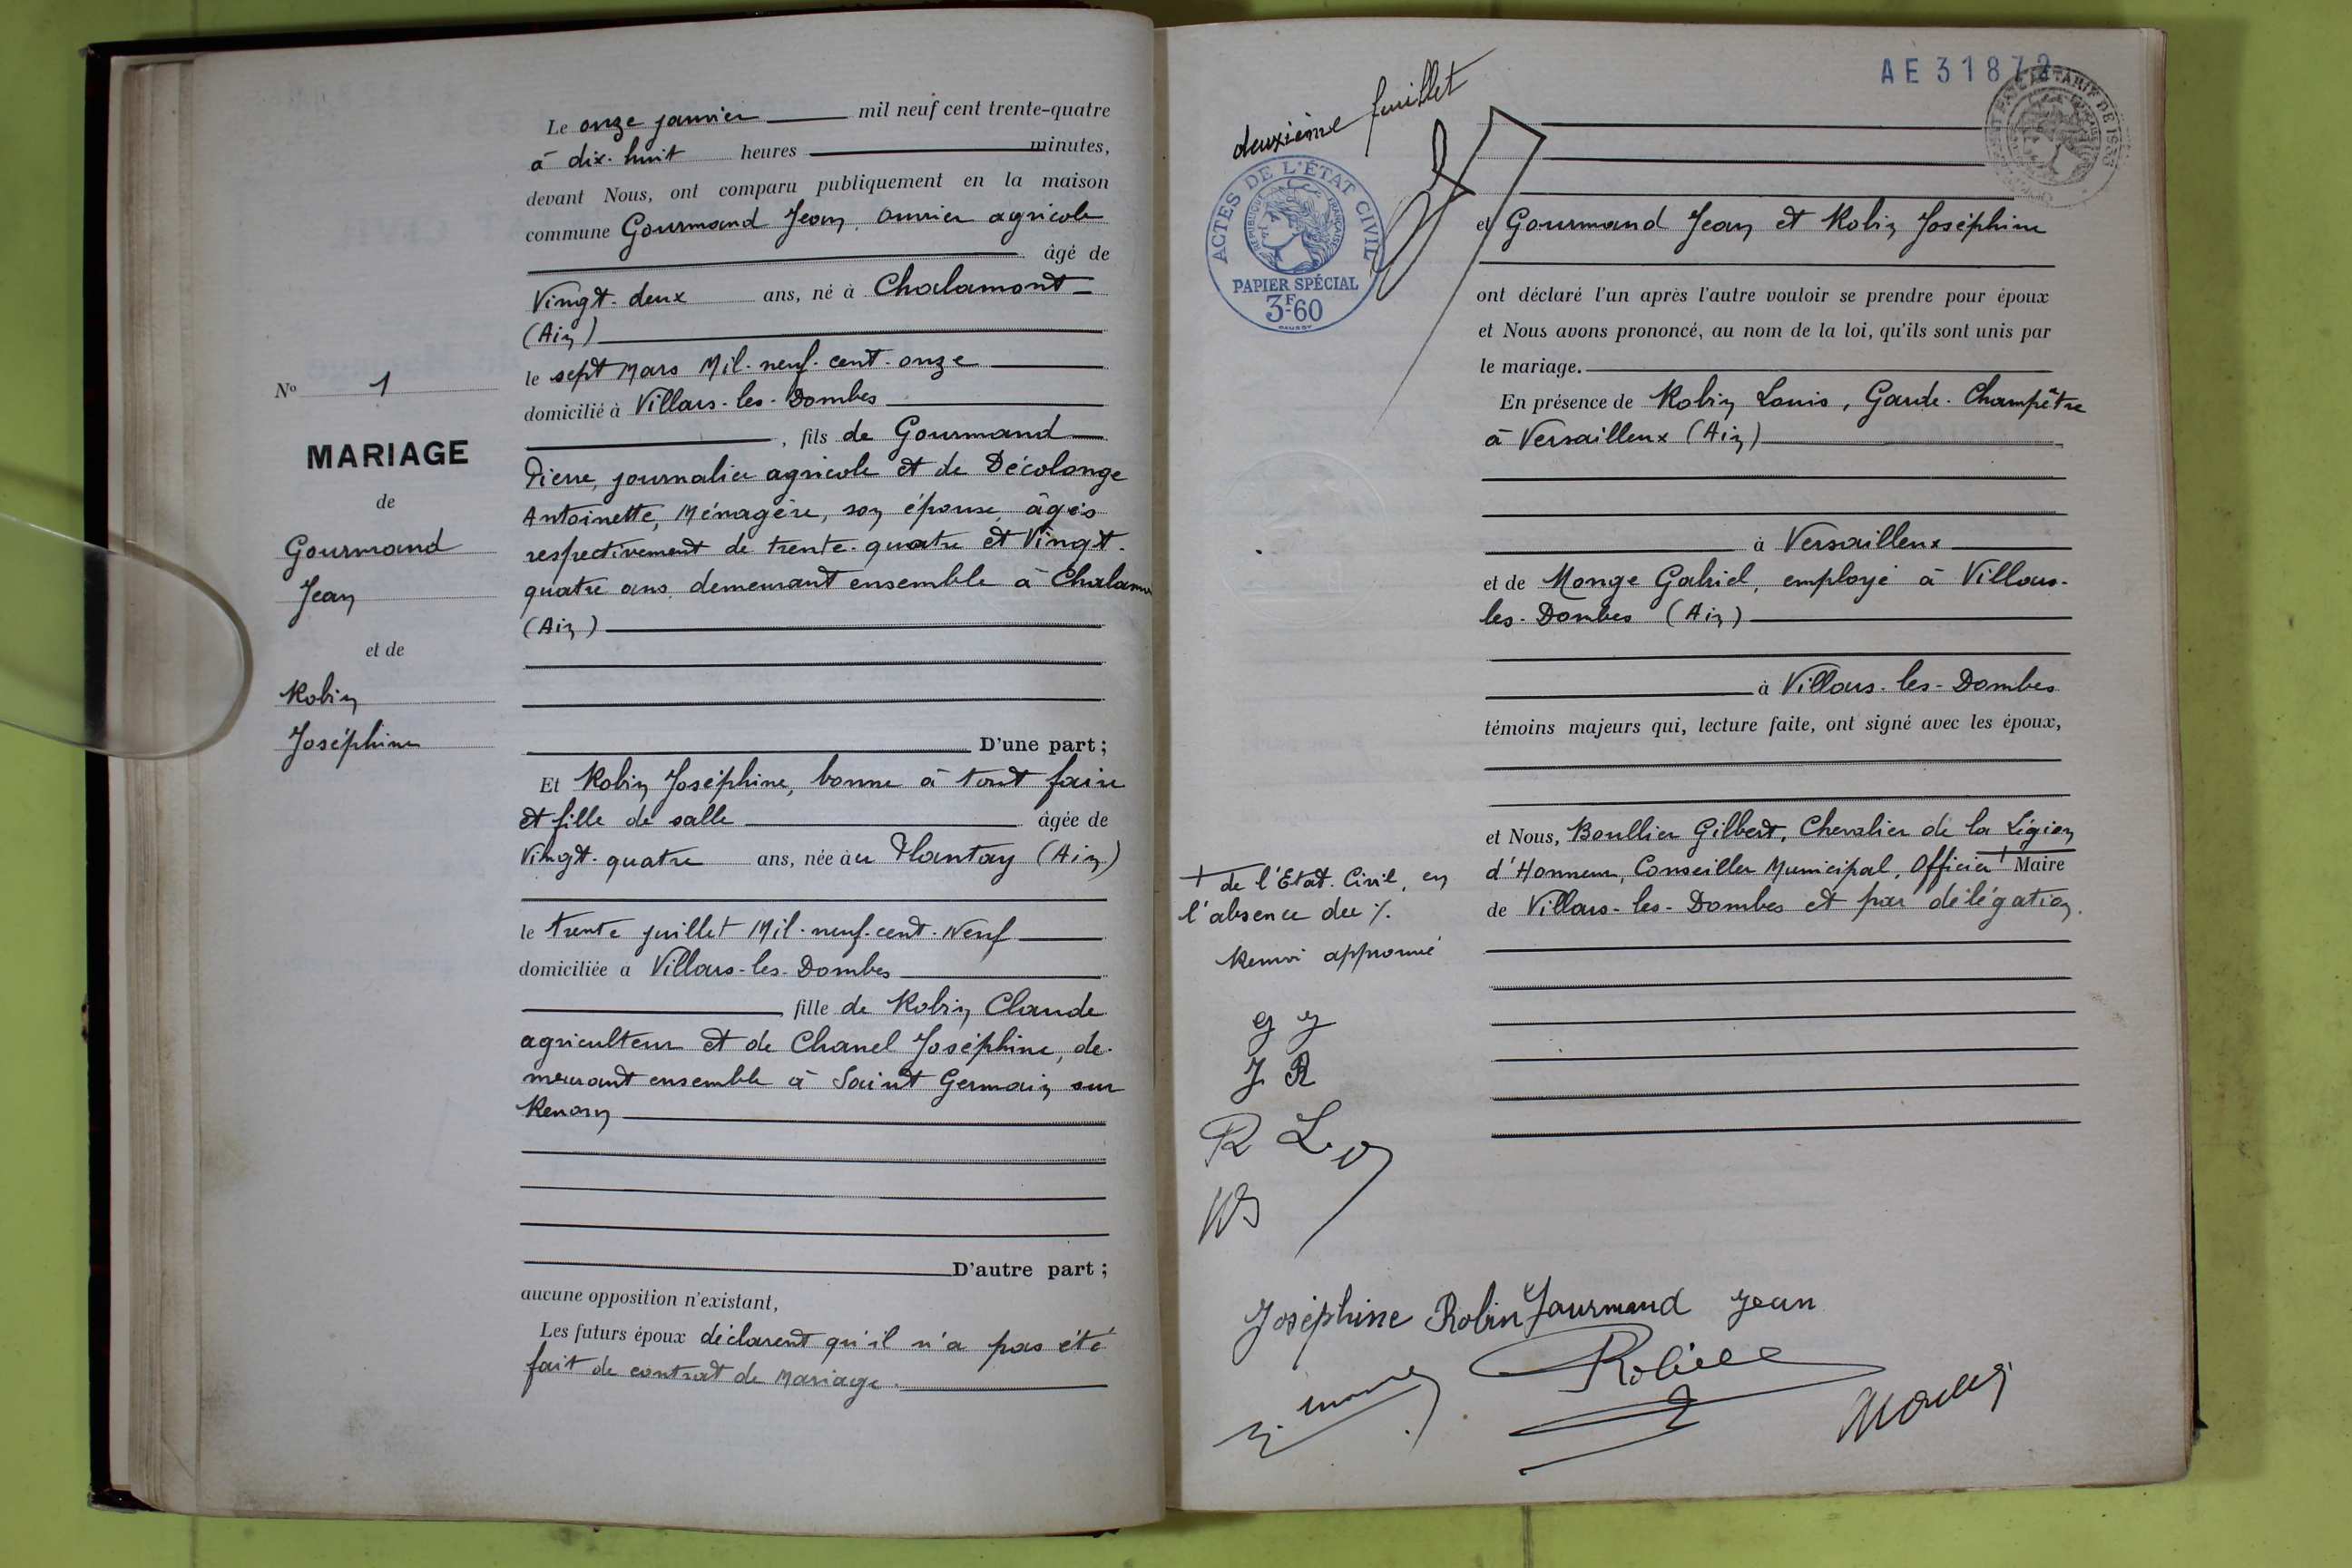 N° 1
MARIAGE
de
Gourmand
Jean
et de
Robin
Joséphine
Le onze janvier mil neuf cent trente-quatre
à dix-huit heures minutes,
devant Nous, ont comparu publiquement en la maison
commune Gourmand Jean, ouvrier agricole
âgé de
Vingt-deux ans, né à Chalamont
(Ain)
le sept Mars Mil-neuf-cent-onze
domicilié à Villars-les-Dombes
, fils de Gourmand
Pierre, journalier agricole et de Décolonge
Antoinette, Ménagère, son épouse, âgés
respectivement de trente-quatre et Vingt-
quatre ans, demeurant ensemble à
(Ain)
D'une part ;
Et Robin Joséphine, bonne à tout faire
et fille de salle âgée de
Vingt-quatre ans, née à u Plantay (Ain)
le trente juillet Mil-neuf-cent-Neuf
domiciliée à Villars-les-Dombes
fille de Robin Claude
agriculteur et de Chanel Joséphine, de-
meurant ensemble à Saint Germain sur
Renon
D'autre part ;
aucune opposition n'existant,
Les futurs époux déclarent qu'il n'a pas été
fait de contrat de Mariage.
deuxième feuillet
ACTES DE L'ÉTAT CIVIL
RÉPUBLIQUE FRANÇAISE
PAPIER SPÉCIAL
3F.60
AE 31872
et Gourmand Jean et Robin Joséphine
ont déclaré l'un après l'autre vouloir se prendre pour époux
et Nous avons prononcé, au nom de la loi, qu'ils sont unis par
le mariage.
En présence de Robin Louis, Garde-Champêtre
à Versailleux (Ain)
à Versailleux
et de Monge Gabriel, employé à Villars-
les-Dombes (Ain)
à Villars-les-Dombes
témoins majeurs qui, lecture faite, ont signé avec les époux,
et Nous, Boullier Gilbert, Chevalier de la Légion
d'Honneur, Conseiller Municipal, Officier + Maire
de Villars-les-Dombes et par délégation.
+ de l'Etat-Civil, en
l'absence du %.
Renvoi approuvé
J R
R L
Joséphine Robin Gourmand Jean
Robin